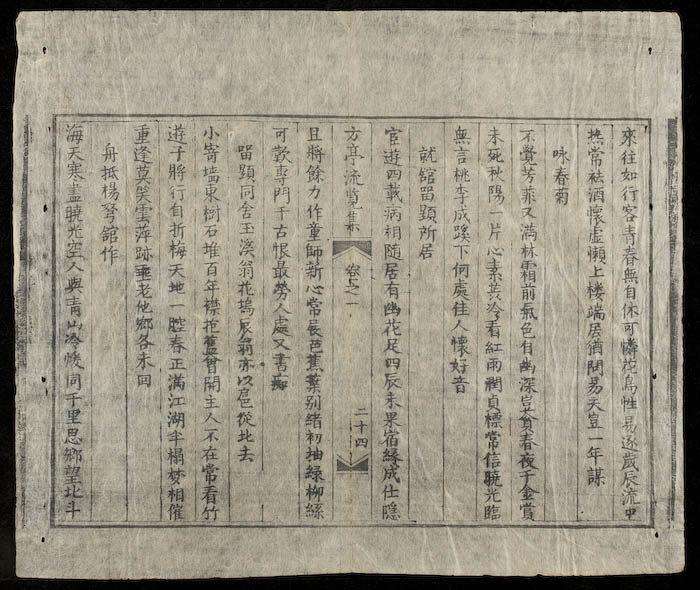 來往如行客青春無自休可憐花鳥性易逐歲辰流中
熱常袪酒懷虛懶上楼端居猶閱易天豈一年謀
咏春菊
不覺芳菲又滿林霜前氣色有幽深豈貪春夜千金賞
未死秋陽一片心素蕊冷看紅雨潤貞標常信曉光臨
無言桃李成蹊下何處佳人懷好音
就舘畱題所居
宦遊四載病相隨居有幽花足四辰未果宿緣成仕隱
方亭流覽集
卷之一
二十四
且將餘力作童師新心常展芭蕉葉別緒初抽綠柳絲
可歎專門千古恨最勞人處又書痴
畱題同舍玉溪翁花塢辰翁亦以亟從北去
小寄墻東樹石堆百年襟抱舊曾開主人不在常看竹
遊子將行自折梅天地一腔春正滿江湖半榻梦相催
重逢莫笑雲萍跡垂老他鄉各未回
舟抵楊孥舘作
海天寒盡曉光空人與青山冷煖同千里思鄉望北斗